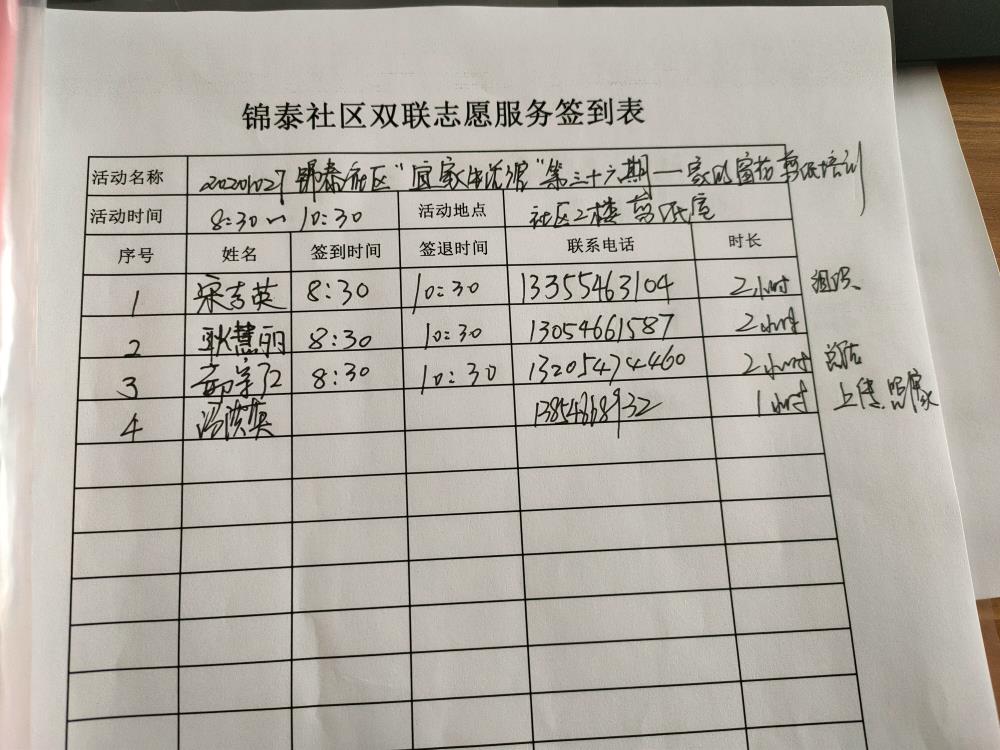 锦泰社区双联志愿服务签到表
活动名称 20201027 锦泰社区"宜家生活馆"第三十六期一家风窗花剪纸培训
活动时间 8:30~10:30 活动地点 社区2楼剪纸屋
序号 姓名 签到时间 签退时间 联系电话 时长
1 宋吉英 8:30 10:30 13355463104 2小时 组织
2 耿慧丽 8:30 10:30 13054661587 2小时
3 8:30 10:30 13205474460 2小时
4 冯洪英 13854668932 1小时 上传